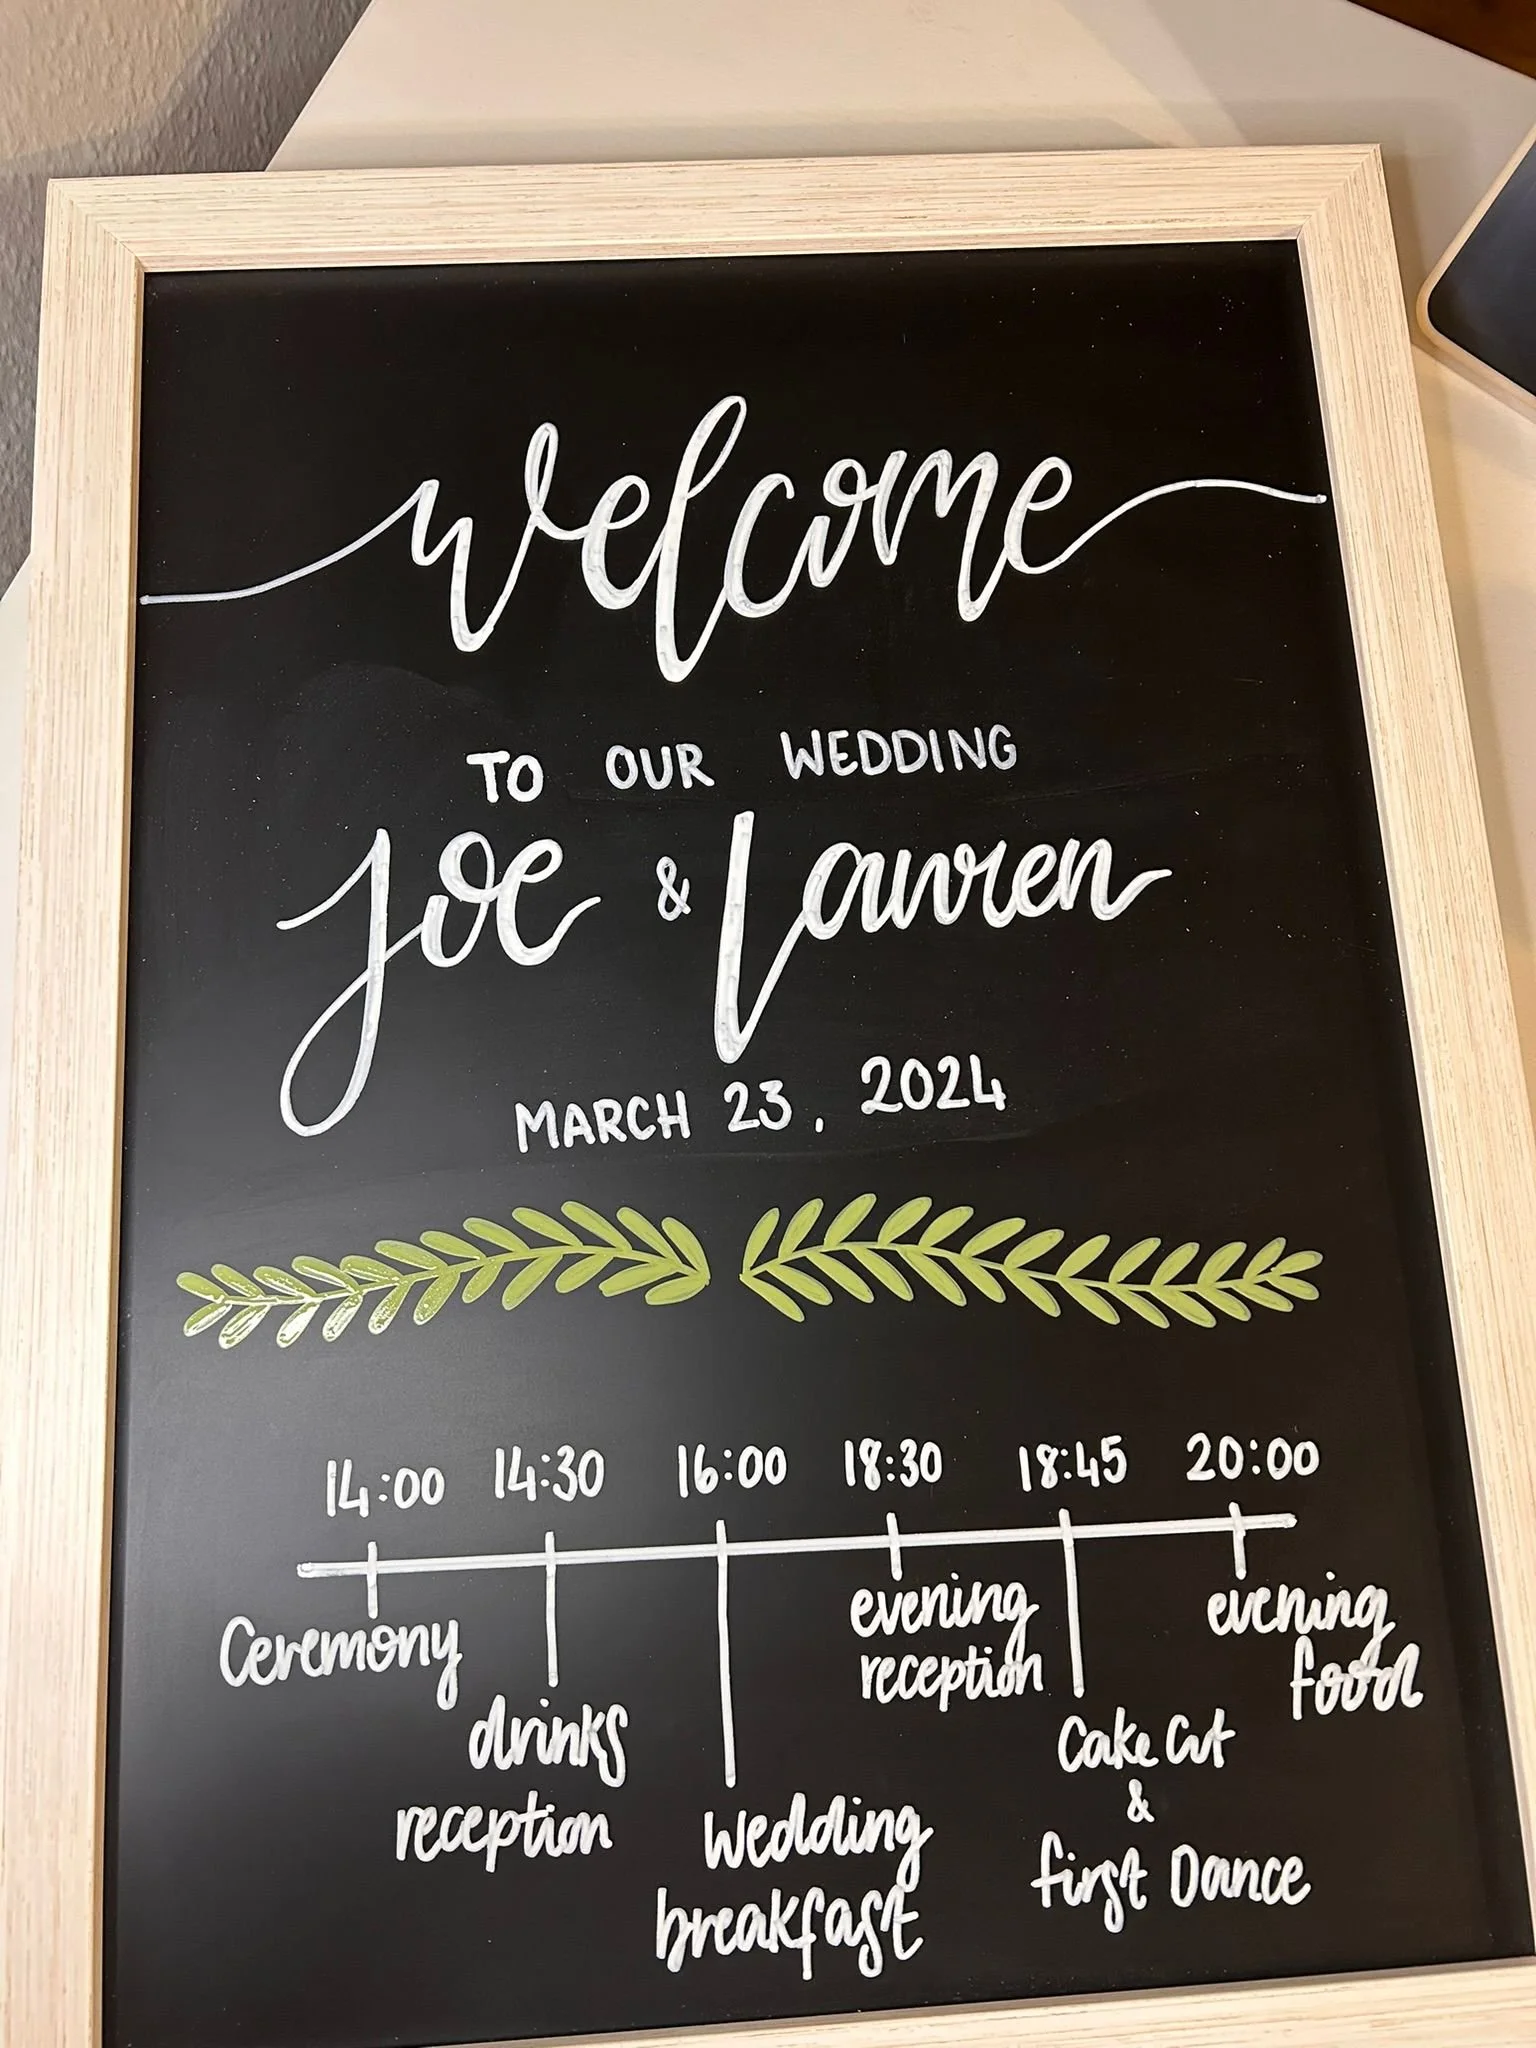 welcome
TO OUR WEDDING
Joe & Lauren
MARCH 23, 2024
14:00 14:30 16:00 18:30 18:45 20:00
Ceremony
drinks
reception
Wedding
breakfast
evening
reception
Cake Cut
&
first Dance
evening
food